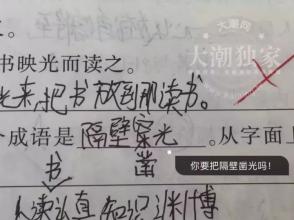 大潮网
之。
大潮独家
书映光而读之。
光来,把书放到那读书。
个成语是 隔壁窜光 。从字面上
书 凿
你要把隔壁凿光吗!
人读认真 知识渊博